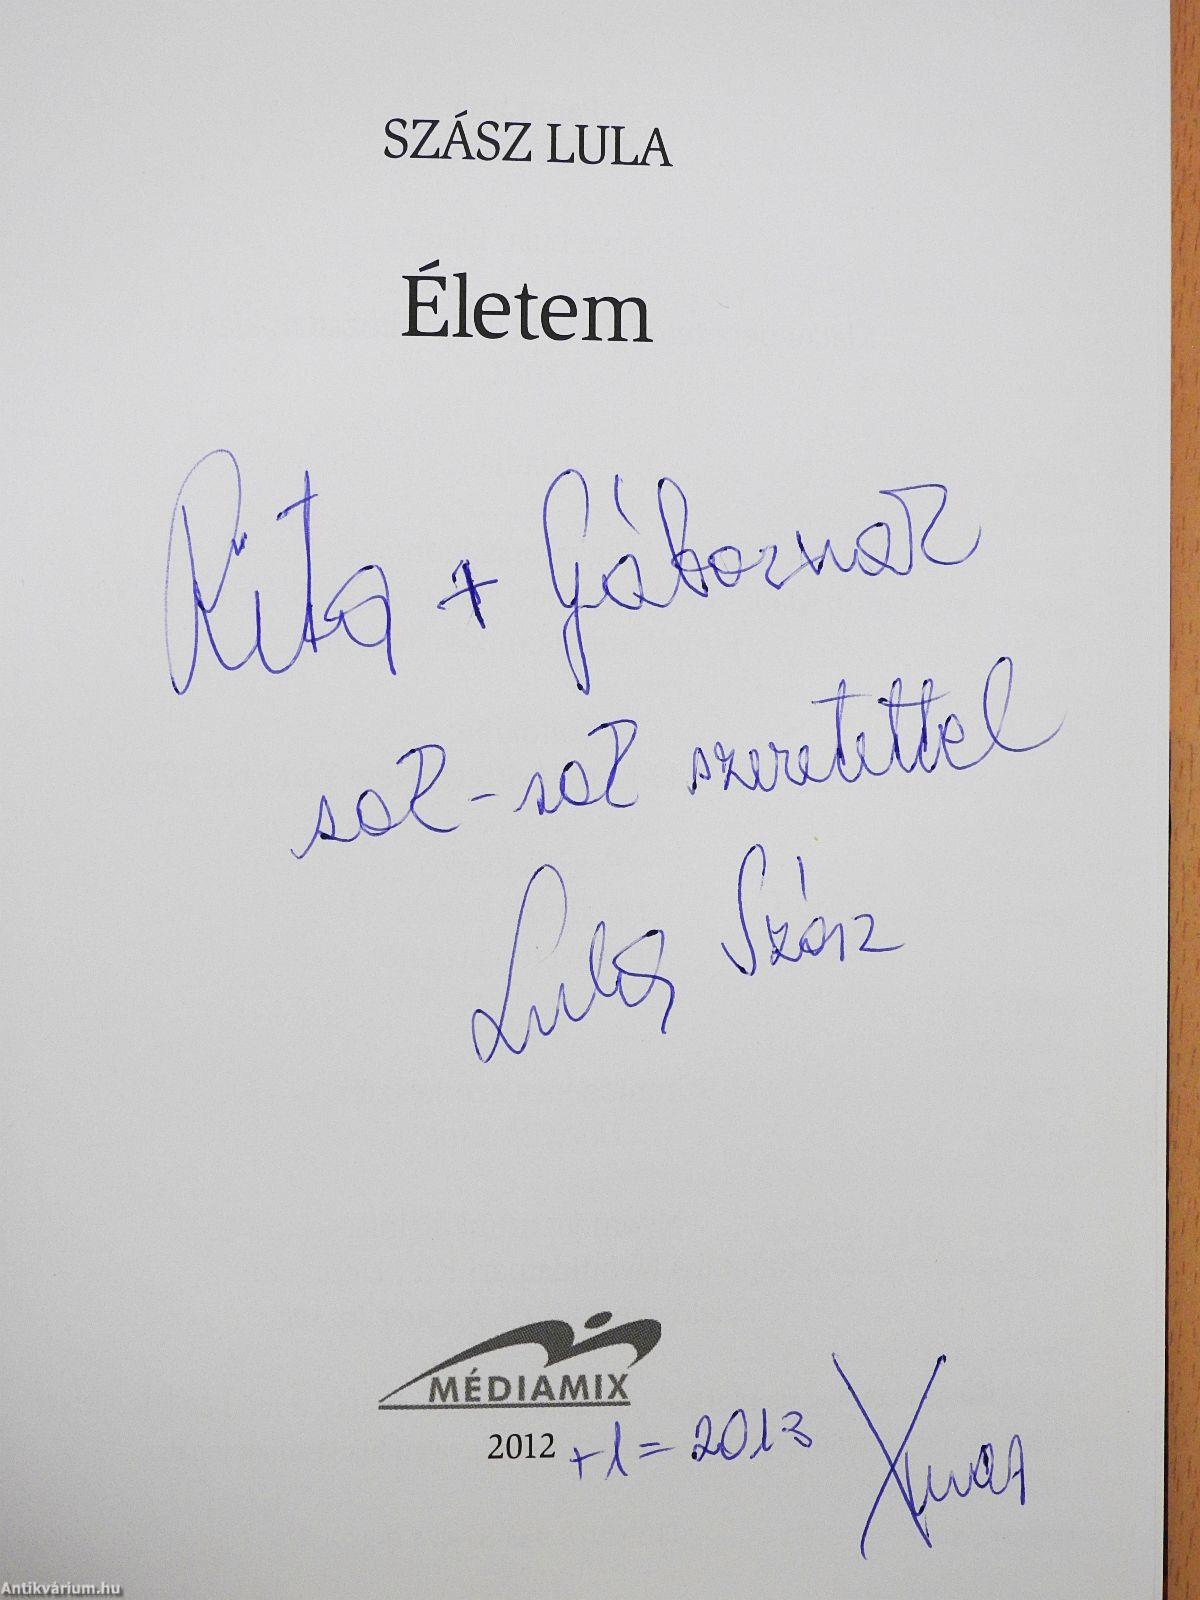 SZÁSZ LULA
Életem
Rita + Gábornak
sok-sok szeretettel
Lula Szász
MÉDIAMIX
2012 +1 = 2013 Xmas
Antikvárium.hu